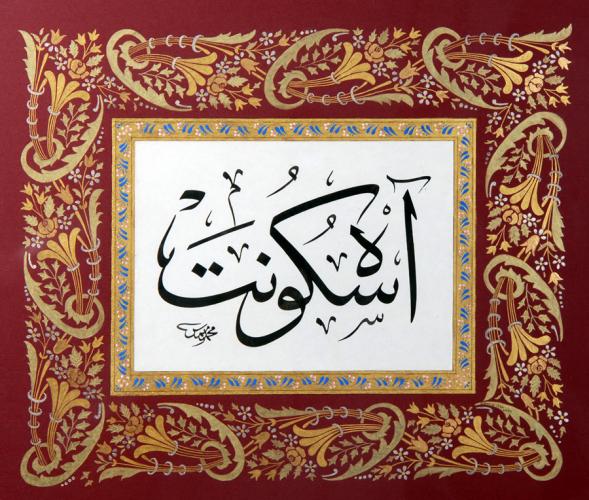 آه سكونت